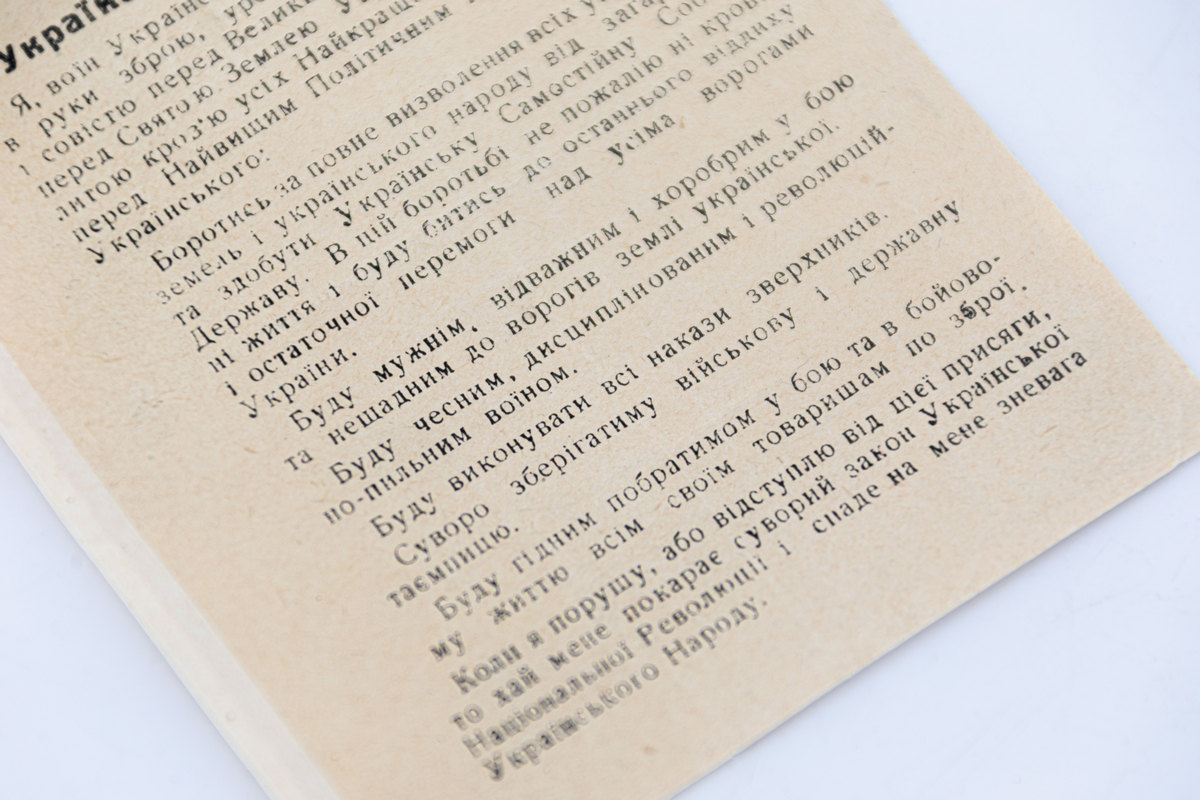 Україн
Я, воїн Україн
в руки зброю, уро
і совістю перед Великим
перед Святою Землею
литою кров'ю усіх Найкращ
перед Найвищим Політичним
Українського:
Боротись за повне визволення всіх
земель і українського народу від загар
та здобути Українську Самостійну Соб
Державу. В цій боротьбі не пожалію ні крови
ні життя і буду битись до останнього віддиху
і остаточної перемоги над усіма ворогами
України.
Буду мужнім, відважним і хоробрим у бою
та нещадним до ворогів землі української.
Буду чесним, дисциплінованим і революцій-
но-пильним воїном.
Буду виконувати всі накази зверхників.
Суворо зберігатиму військову і державну
таємницю.
Буду гідним побратимом у бою та в бойово-
му життю всім своїм товаришам по зброї.
Коли я порушу, або відступлю від цієї присяги,
то хай мене покарає суворий закон Української
Національної Революції і спаде на мене зневага
Українського Народу.